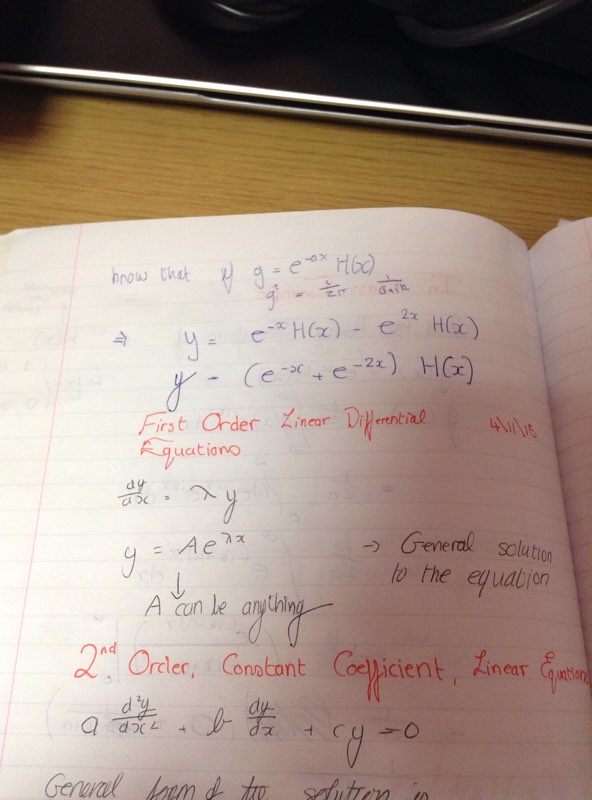 know that if g = e^-ax H(x)
ĝ = 1/2π 1/a+ik
⇒ y = e^-x H(x) - e^2x H(x)
y = (e^-x + e^-2x) H(x)
First Order Linear Differential 4\11\15
Equations
dy/dx = λy
y = Ae^λx → General solution
to the equation
↓
A can be anything
2nd Order, Constant Coefficient, Linear Equations
a d²y/dx² + b dy/dx + cy = 0
General form of the solution is